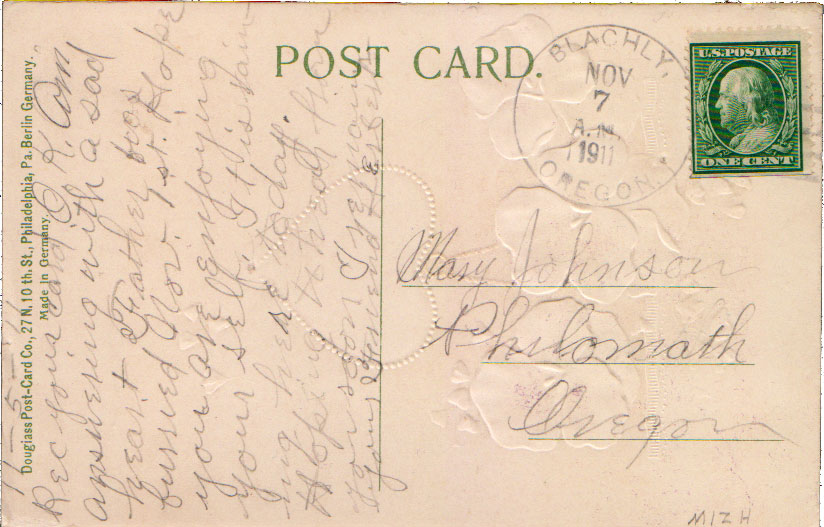 POST CARD.
BLACHLY,
NOV
7
A.M.
1911
OREGON.
U.S. POSTAGE
ONE CENT
Mary Johnson
Philomath
Oregon
Douglass Post-Card Co., 27 N. 10 th. St., Philadelphia, Pa. Berlin Germany.
Made in Germany.
11-5-11
Rec your card O.K. Am
answering with a sad
heart Father was
burried Nov. 1 st. Hope
you are enjoying
your self, it is rain
ing here to day.
Hoping to hear from
you soon I remain
your Friend
MIZH